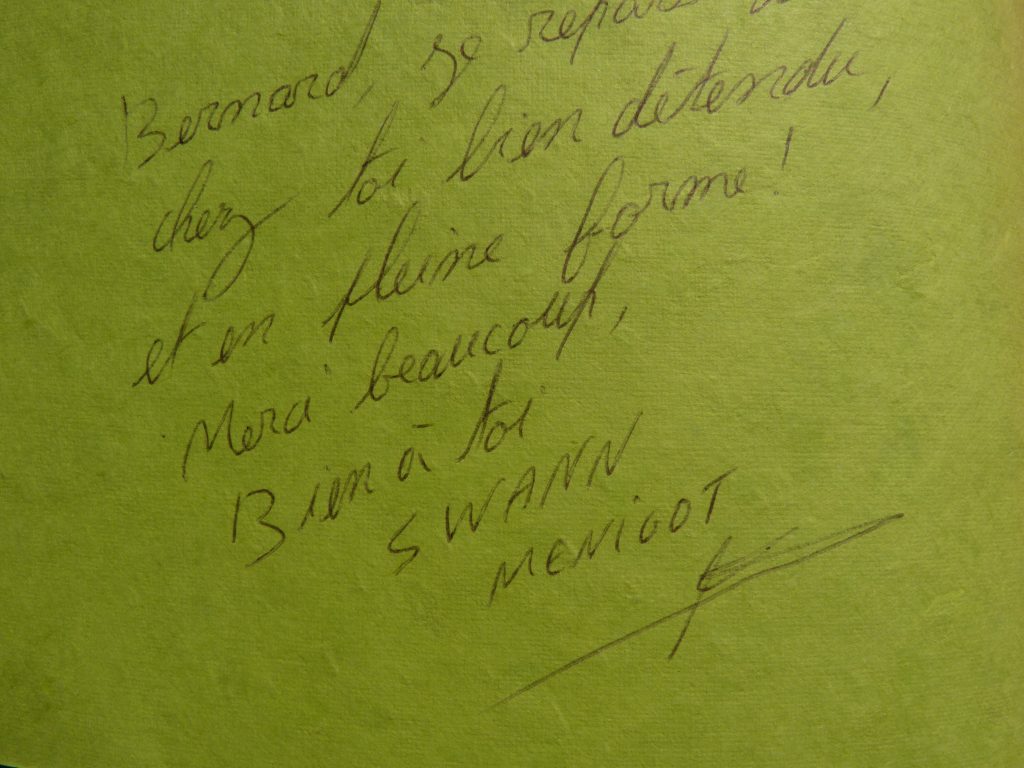 Bernard, je repars de
chez toi bien détendu,
et en pleine forme !
Merci beaucoup,
Bien à toi
SWANN
MENIGOT